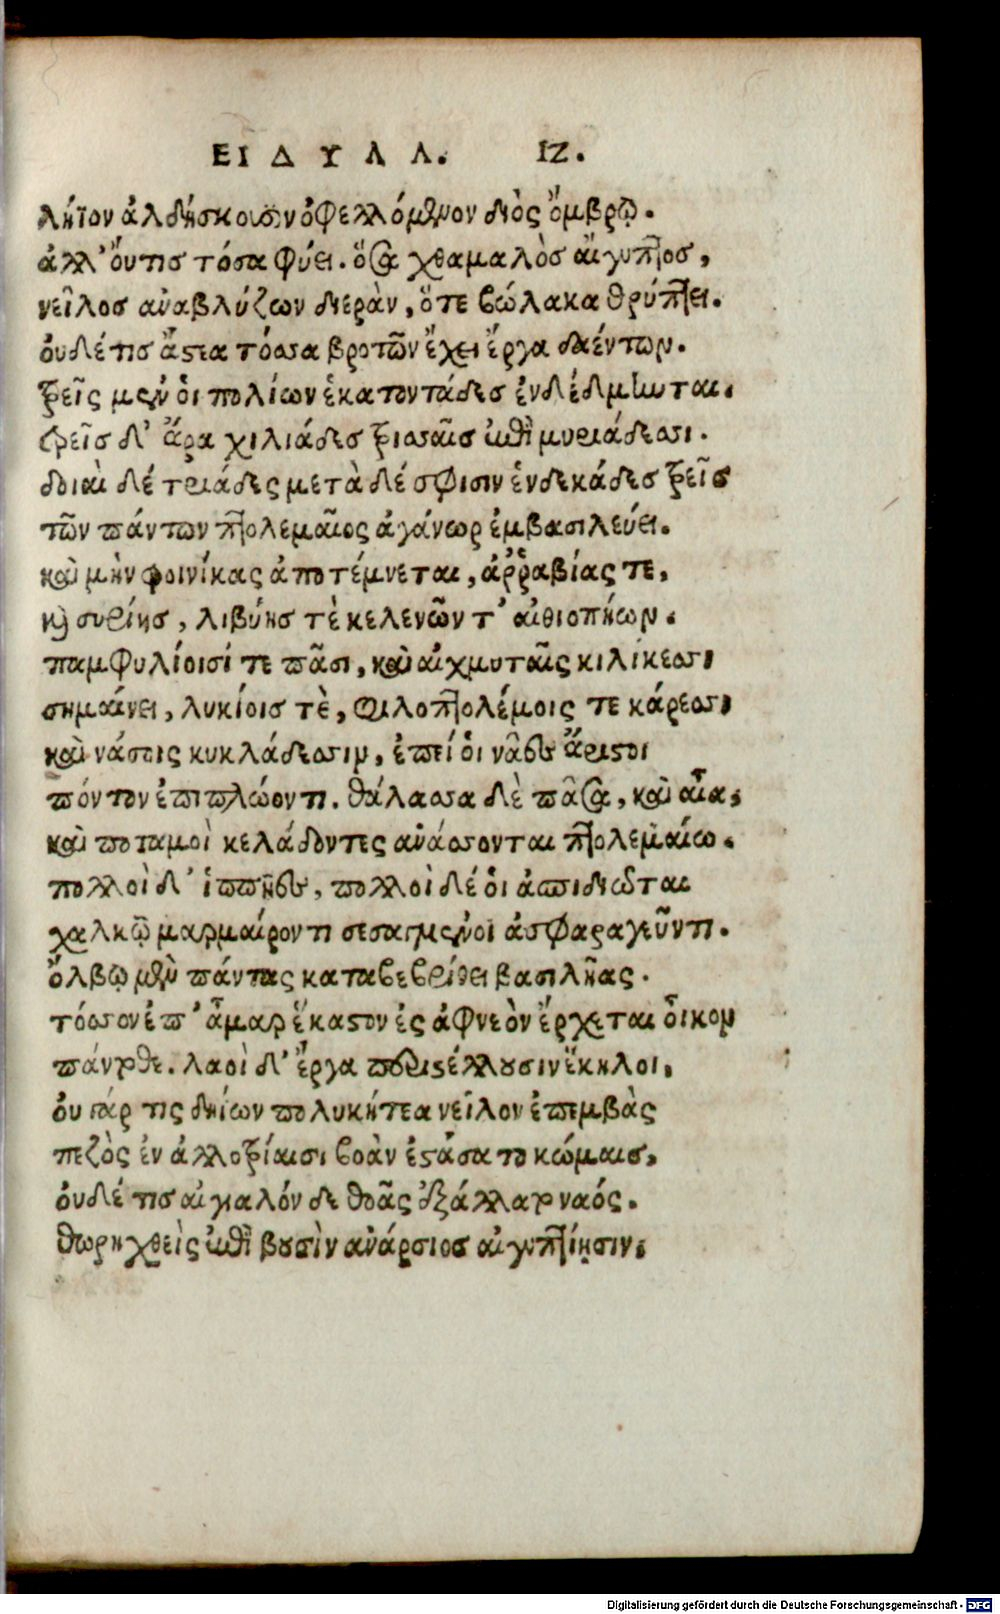 ΕΙΔΥΛΛ. ΙΖ.
λήϊον ἀλδήσκουσιν ὀφελλόμενον διὸς ὄμβρῳ.
ἀλλ' ὄυτις τόσα φύει. ὅσα χθαμαλὸς αἴγυπτος,
νεῖλος ἀναβλύζων διερὰν, ὅτε βώλακα θρύπτει.
ὀυδέ τις ἄστεα τόσσα βροτῶν ἔχει ἔργα δαέντων.
τρεῖς μὲν ὁι πολίων ἑκατοντάδες ἐνδέδμηνται.
τρεῖς δ' ἄρα χιλιάδες τρισσαῖς ἐπὶ μυριάδεσσι.
δοιαὶ δέ τριάδες μετὰ δέ σφισιν ἑνδεκάδες τρεῖς
τῶν πάντων πτολεμαῖος ἀγάνωρ ἐμβασιλεύει.
καὶ μὴν φοινίκας ἀποτέμνεται, ἀῤῥαβίας τε,
καὶ συρίης, λιβύης τὲ κελενῶν τ' αἰθιοπήων.
παμφυλίοισί τε πᾶσι, καὶ αἰχμυταῖς κιλίκεσσι
σημαίνει, λυκίοις τὲ, φιλοπτολέμοις τε κάρεσσι
καὶ νάσοις κυκλάδεσσιν, ἐπεί ὁι νᾶες ἄριστοι
πόντον ἐπιπλώοντι. θάλασσα δὲ πᾶσα, καὶ αἶα,
καὶ ποταμοὶ κελάδοντες ἀνάσσονται πτολεμαίω.
πολλοὶ δ' ἱππῆες, πολλοὶ δέ ὁι ἀσπιδιῶται
χαλκῷ μαρμαίροντι σεσαγμένοι ἀσφαραγεῦντι.
ὄλβῳ μὲν πάντας καταβεβρίθει βασιλῆας.
τόσσον ἐπ' ἆμαρ ἕκαστον ἐς ἀφνεὸν ἔρχεται οἶκον
πάντοθε. λαοὶ δ' ἔργα περιστέλλουσιν ἕκηλοι,
ὀυ γάρ τις δηίων πολυκήτεα νεῖλον ἐπεμβὰς
πεζὸς ἐν ἀλλοτρίαισι βοὰν ἐστάσατο κώμαις,
ὀυδέ τις αἰγιαλόν δε θοᾶς ἐξάλλατο ναός.
θωρηχθεὶς ἐπὶ βουσὶν ἀνάρσιος αἰγυπτίῃσιν,
Digitalisierung gefördert durch die Deutsche Forschungsgemeinschaft - DFG